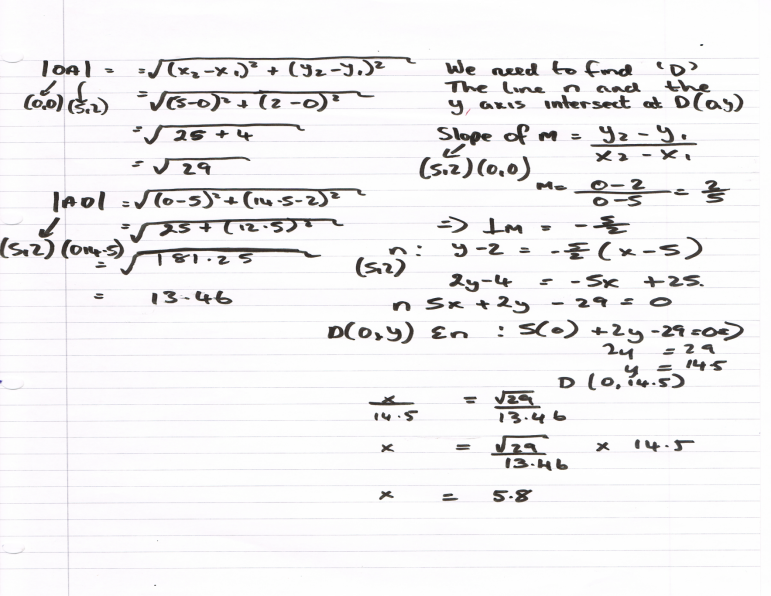 |OA| = =√(x₂-x₁)² + (y₂-y₁)²
(0,0) (5,2) =√(5-0)² + (2-0)²
=√25 + 4
=√29
|AD| =√(0-5)² + (14.5-2)²
=√25 + (12.5)²
(5,2) (0,14.5) =√181.25
= 13.46
We need to find 'D'
The line n and the
y axis intersect at D(0,y)
Slope of M = y₂ - y₁ / x₂ - x₁
(5,2) (0,0)
M = 0-2 / 0-5 = 2/5
=> ⊥M = -5/2
n: y-2 = -5/2 (x-5)
(5,2)
2y-4 = -5x +25.
n 5x + 2y - 29 = 0
D(0,y) εn : 5(0) + 2y -29=0=>
2y = 29
y = 14.5
D (0,14.5)
x/14.5 = √29/13.46
x = √29/13.46 x 14.5
x = 5.8